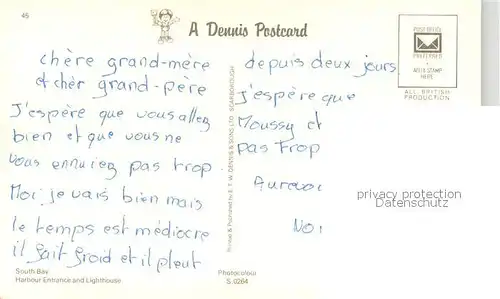 45
A Dennis Postcard
POST OFFICE
PREFERRED
ADD STAMP
HERE
ALL BRITISH
PRODUCTION
chère grand-mère
et chèr grand-père
J'espère que vous allez
bien et que vous ne
vous ennuiez pas trop.
Moi je vais bien mais
le temps est médiocre
il fait froid et il pleut
depuis deux jours
j'espère que
Moussy et
pas trop
Aurevoi
Printed & Published by E. T. W. DENNIS & SONS LTD. SCARBOROUGH
privacy protection
Datenschutz
South Bay
Harbour Entrance and Lighthouse
Photocolour
S.0264